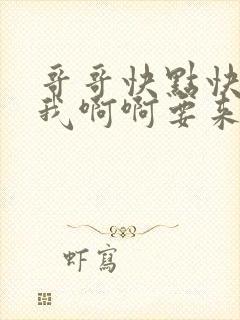 哥哥快點快
我啊啊要來
虾寫